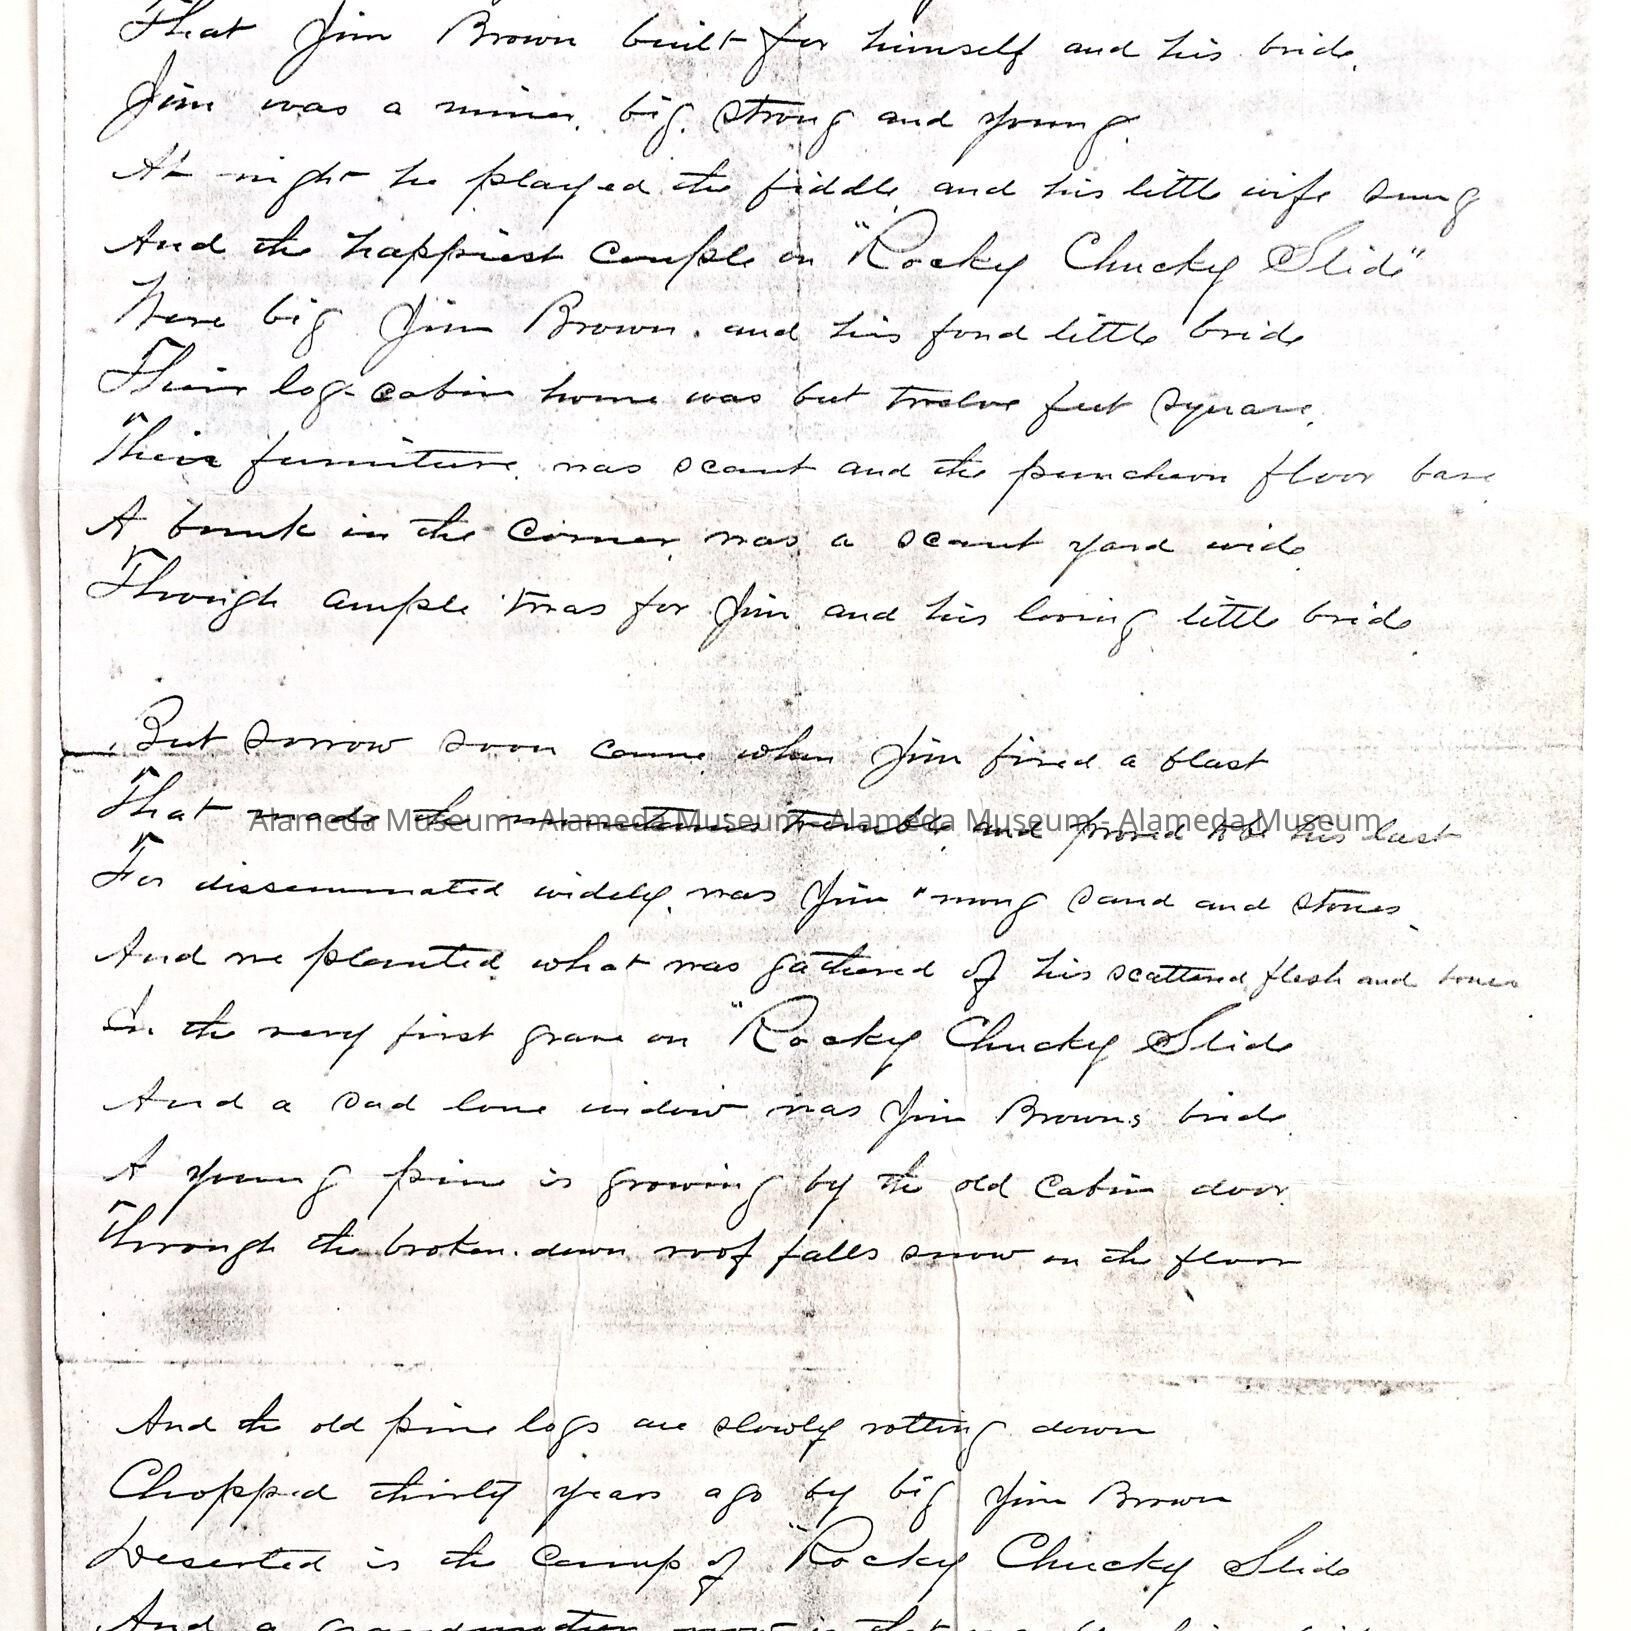 That Jim Brown built for himself and his bride.
Jim was a miner, big, strong and young.
At night he played the fiddle, and his little wife sung
And the happiest couple on "Rocky Chucky Slide"
Were big Jim Brown. and his fond little bride
Their log-cabin home was but twelve feet square.
Their furniture was scant and the puncheon floor bare
A bunk in the corner was a scant yard wide.
Through ample 'twas for Jim and his loving little bride.
But sorrow soon came when Jim fired a blast
That made the mountains tremble and proved to be his last
Alameda Museum - Alameda Museum - Alameda Museum - Alameda Museum
For dissemmated widely was Jim "mong sand and stones.
And we planted what was gathered of his scattered flesh and bones
In the very first grave on "Rocky Chucky Slide
And a sad lone widow was Jim Browns bride.
A young pine is growing by the old cabin door.
Through the broken-down roof falls snow on the floor
And the old pine logs are slowly rotting down
Chopped thirty years ago by big Jim Brown
Deserted is the camp of "Rocky Chucky Slide
And a grandmother now is that